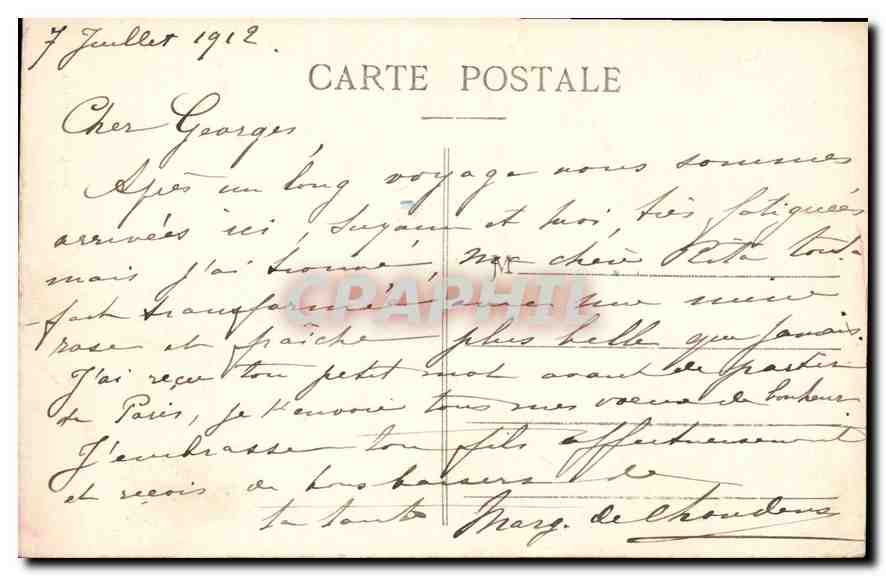 7 Juillet 1912.
CARTE POSTALE
Cher Georges,
Après un long voyage nous sommes
arrivées ici, Suzanne et moi, très fatiguées
mais j'ai trouvé, ma chère Rita tout-à-
M
fait transformée, avec une mine
CPAPHIL
rose et fraîche plus belle que jamais.
J'ai reçu ton petit mot avant de partir
de Paris, je t'envoie tous mes voeux de bonheur.
J'embrasse ton fils affectueusement
et reçois de bons baisers de
ta tante Marg. de Choudens